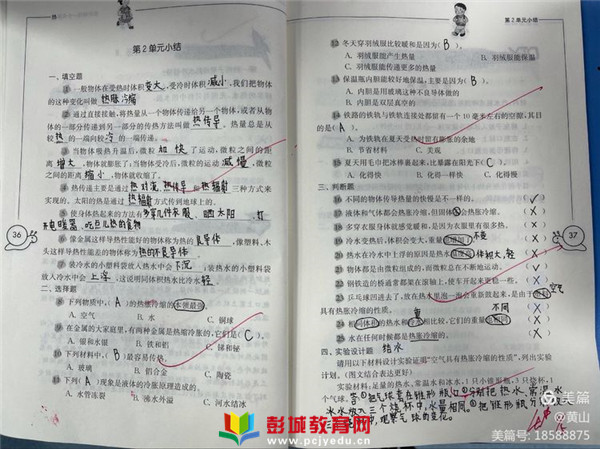 第2单元小结
一、填空题
① 一般物体在受热时体积变大,受冷时体积减小,我们把物体
的这种变化叫做热胀冷缩。
② 通过直接接触,将热量从一个物体传递给另一个物体,或者从物
体的一部分传递到另一部分的传热方法叫做热传导。热量总是从
较热的一端向较冷的一端传递。
③ 当物体吸热升温后,微粒加快了运动,微粒之间的距
离增大,物体就膨胀了;当物体受冷后,微粒的运动减慢,微粒
之间的距离缩小,物体就收缩了。
④ 热传递主要是通过热对流、热传导和热辐射三种方式来
实现的。太阳的热是通过热辐射方式传到地球上的。
⑤ 使身体热起来的方法有多穿几件衣服 晒太阳 打
开电暖器、吃点儿热的食物
⑥ 像金属这样导热性能好的物体称为热的良导体,像塑料、木
头这样导热性能差的物体称为热的不良导体。
⑦ 装冷水的小塑料袋放入热水中会下沉,装热水的小塑料袋
放入冷水中会上浮,这说明同体积热水比冷水轻。
二、选择题
⑧ 下列物质中,( A )的热胀冷缩本领最强。
A. 空气 B. 水 C. 铜球
⑨ 在金属的大家庭里,有两种金属是热缩冷胀的,它们是( C )。
A. 银和水银 B. 铁和铝 C. 锑和铋
⑩ 下列材料中,( B )最容易传热。
A. 玻璃 B. 铝合金 C. 陶瓷
⑪ 下列( A )现象是液体的冷胀原理造成的。
A. 水管冻裂 B. 沸水外溢 C. 河水结冰
36
第2单元小结
⑫ 冬天穿羽绒服比较暖和是因为( B )。
A. 羽绒服能产生热量 B. 羽绒服能保温
C. 羽绒服能传递更多的热量
⑬ 保温瓶内胆能较好地保温,主要是因为( B )。
A. 内胆是用玻璃这种不良导体做的
B. 内胆是双层真空的
⑭ 铁路的铁轨与铁轨连接处都留有一个10毫米左右的空隙,其目
的是( A )。
A. 为铁轨在夏天受热时留有膨胀的余地
B. 节省材料 C. 美观
⑮ 夏天用毛巾把冰棒裹起来,比暴露在阳光下( C )。
A. 化得快 B. 化得一样快 C. 化得慢
三、判断题
⑯ 不同的物体传导热量的快慢是不一样的。 (√)
⑰ 液体和气体都会热胀冷缩,但固体不会热胀冷缩。 (X)
⑱ 多穿衣服身体就感觉变暖,是因为衣服里有很多热。 (X)
⑲ 冷水变热后,体积会变大,重量 不变 (X)
⑳ 热水在冷水中上浮的原因是热水 体积大,轻 (X)
㉑ 物体都是由微粒组成的,而微粒总在不断地运动。 (√)
㉒ 钢铁造的桥通常都架在滚轴上,使车开起来更稳一些。 (X)
㉓ 乒乓球凹进去了,放在热水里泡一泡会重新鼓起来,是由于 空气
具有热胀冷缩的性质。 (X)
㉔ 相同体积的热水和冷水相比,它们的重量 不同 (X)
㉕ 水在任何时候都是热涨冷缩的。 (X)
四、实验设计题
请用下列材料设计实验证明“空气具有热胀冷缩的性质”,列出实验
计划。(图文结合表达更好)
实验材料:足量的热水、常温水和冰水,1只小锥形瓶,3只烧杯,1
个气球。
37
彭城教育网
www.pcjyedu.cn
美篇
@黄山
美篇号: 18588875